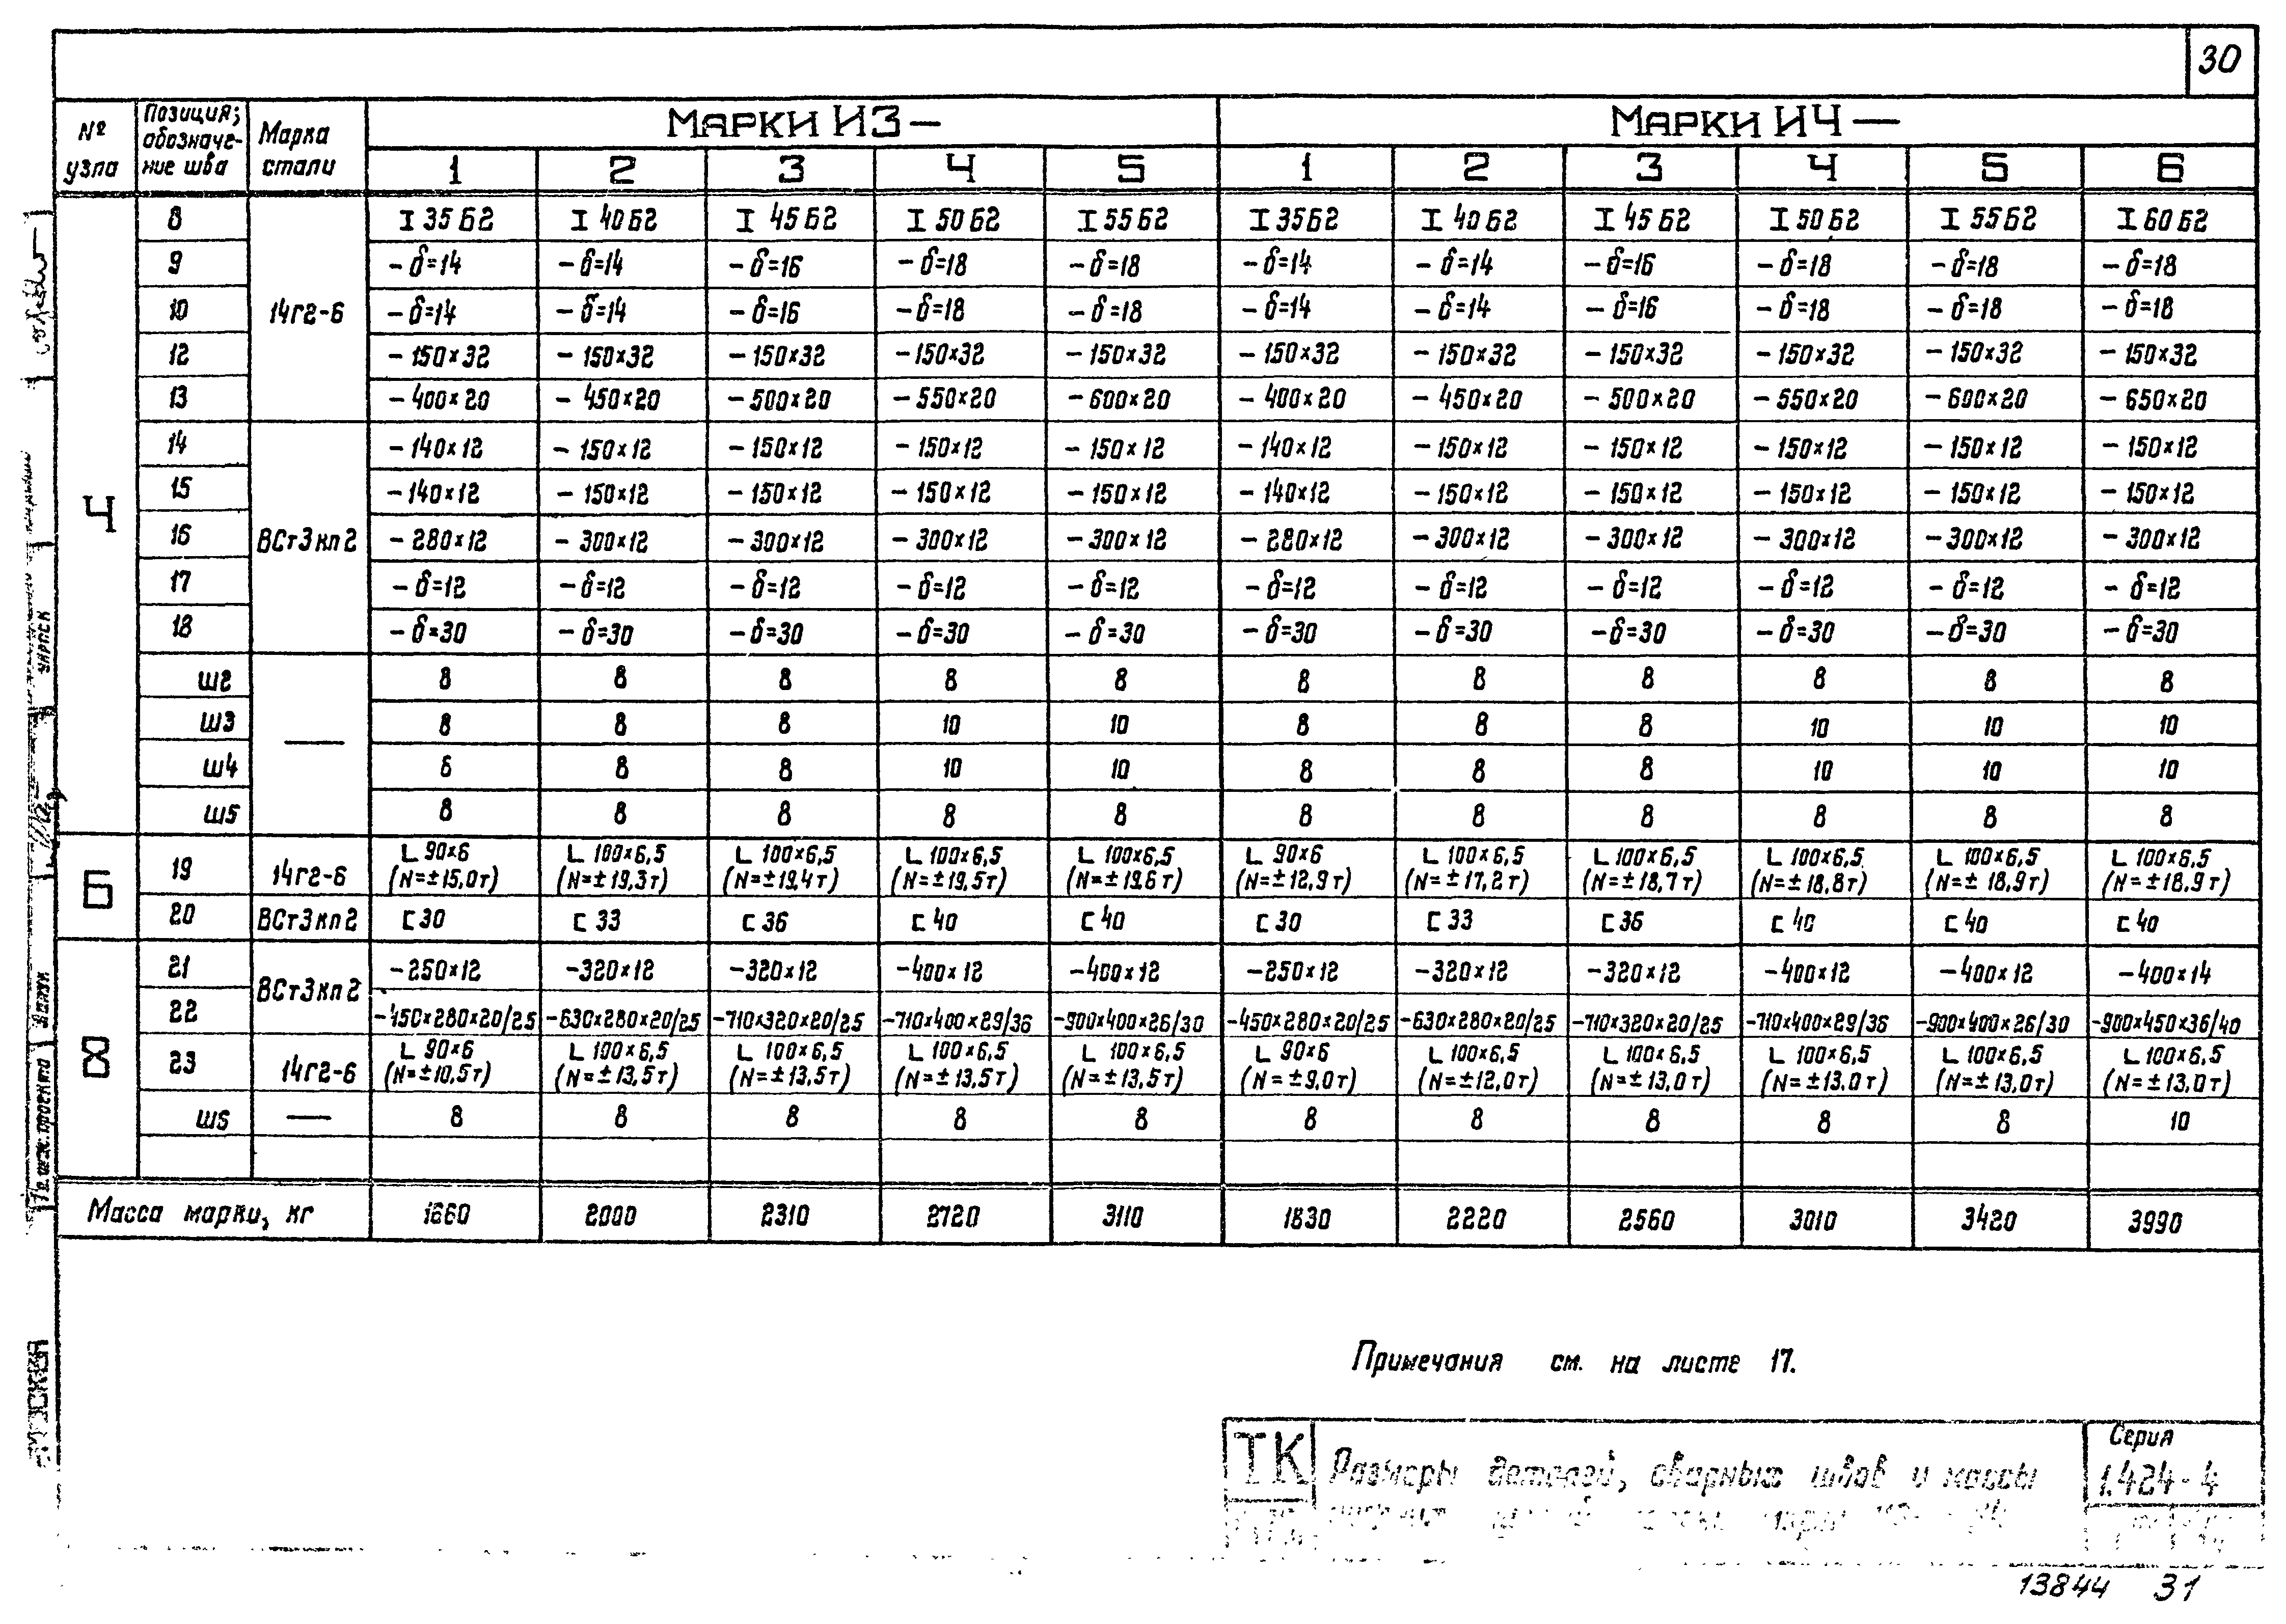 30
№ узла Позиция; обозначение шва Марка стали МАРКИ И3— МАРКИ И4—
1 2 3 4 5 1 2 3 4 5 6
4
8 14Г2-6 I 35Б2 I 40Б2 I 45Б2 I 50Б2 I 55Б2 I 35Б2 I 40Б2 I 45Б2 I 50Б2 I 55Б2 I 60Б2
9 -δ=14 -δ=14 -δ=16 -δ=18 -δ=18 -δ=14 -δ=14 -δ=16 -δ=18 -δ=18 -δ=18
10 -δ=14 -δ=14 -δ=16 -δ=18 -δ=18 -δ=14 -δ=14 -δ=16 -δ=18 -δ=18 -δ=18
12 -150×32 -150×32 -150×32 -150×32 -150×32 -150×32 -150×32 -150×32 -150×32 -150×32 -150×32
13 -400×20 -450×20 -500×20 -550×20 -600×20 -400×20 -450×20 -500×20 -550×20 -600×20 -650×20
14 ВСт3кп2 -140×12 -150×12 -150×12 -150×12 -150×12 -140×12 -150×12 -150×12 -150×12 -150×12 -150×12
15 -140×12 -150×12 -150×12 -150×12 -150×12 -140×12 -150×12 -150×12 -150×12 -150×12 -150×12
16 -280×12 -300×12 -300×12 -300×12 -300×12 -280×12 -300×12 -300×12 -300×12 -300×12 -300×12
17 -δ=12 -δ=12 -δ=12 -δ=12 -δ=12 -δ=12 -δ=12 -δ=12 -δ=12 -δ=12 -δ=12
18 -δ=30 -δ=30 -δ=30 -δ=30 -δ=30 -δ=30 -δ=30 -δ=30 -δ=30 -δ=30 -δ=30
ш2 — 8 8 8 8 8 8 8 8 8 8 8
ш3 8 8 8 10 10 8 8 8 10 10 10
ш4 6 8 8 10 10 8 8 8 10 10 10
ш5 8 8 8 8 8 8 8 8 8 8 8
6
19 14Г2-6 L 90×6 L 100×6,5 L 100×6,5 L 100×6,5 L 100×6,5 L 90×6 L 100×6,5 L 100×6,5 L 100×6,5 L 100×6,5 L 100×6,5
(N=±15,0т) (N=±19,3т) (N=±19,4т) (N=±19,5т) (N=±19,6т) (N=±12,9т) (N=±17,2т) (N=±18,7т) (N=±18,8т) (N=±18,9т) (N=±18,9т)
20 ВСт3кп2 [ 30 [ 33 [ 36 [ 40 [ 40 [ 30 [ 33 [ 36 [ 40 [ 40 [ 40
8
21 ВСт3кп2 -250×12 -320×12 -320×12 -400×12 -400×12 -250×12 -320×12 -320×12 -400×12 -400×12 -400×14
22 -450×280×20/25 -630×280×20/25 -710×320×20/25 -710×400×29/36 -900×400×26/30 -450×280×20/25 -630×280×20/25 -710×320×20/25 -710×400×29/36 -900×400×26/30 -900×450×36/40
23 14Г2-6 L 90×6 L 100×6,5 L 100×6,5 L 100×6,5 L 100×6,5 L 90×6 L 100×6,5 L 100×6,5 L 100×6,5 L 100×6,5 L 100×6,5
(N=±10,5т) (N=±13,5т) (N=±13,5т) (N=±13,5т) (N=±13,5т) (N=±9,0т) (N=±12,0т) (N=±13,0т) (N=±13,0т) (N=±13,0т) (N=±13,0т)
ш6 — 8 8 8 8 8 8 8 8 8 8 10
Масса марки, кг 1660 2000 2310 2720 3110 1830 2220 2560 3010 3420 3990
Примечания см. на листе 17.
ТК
Размеры деталей, сварных швов и массы
марки
Серия
1.424-4
13844 31